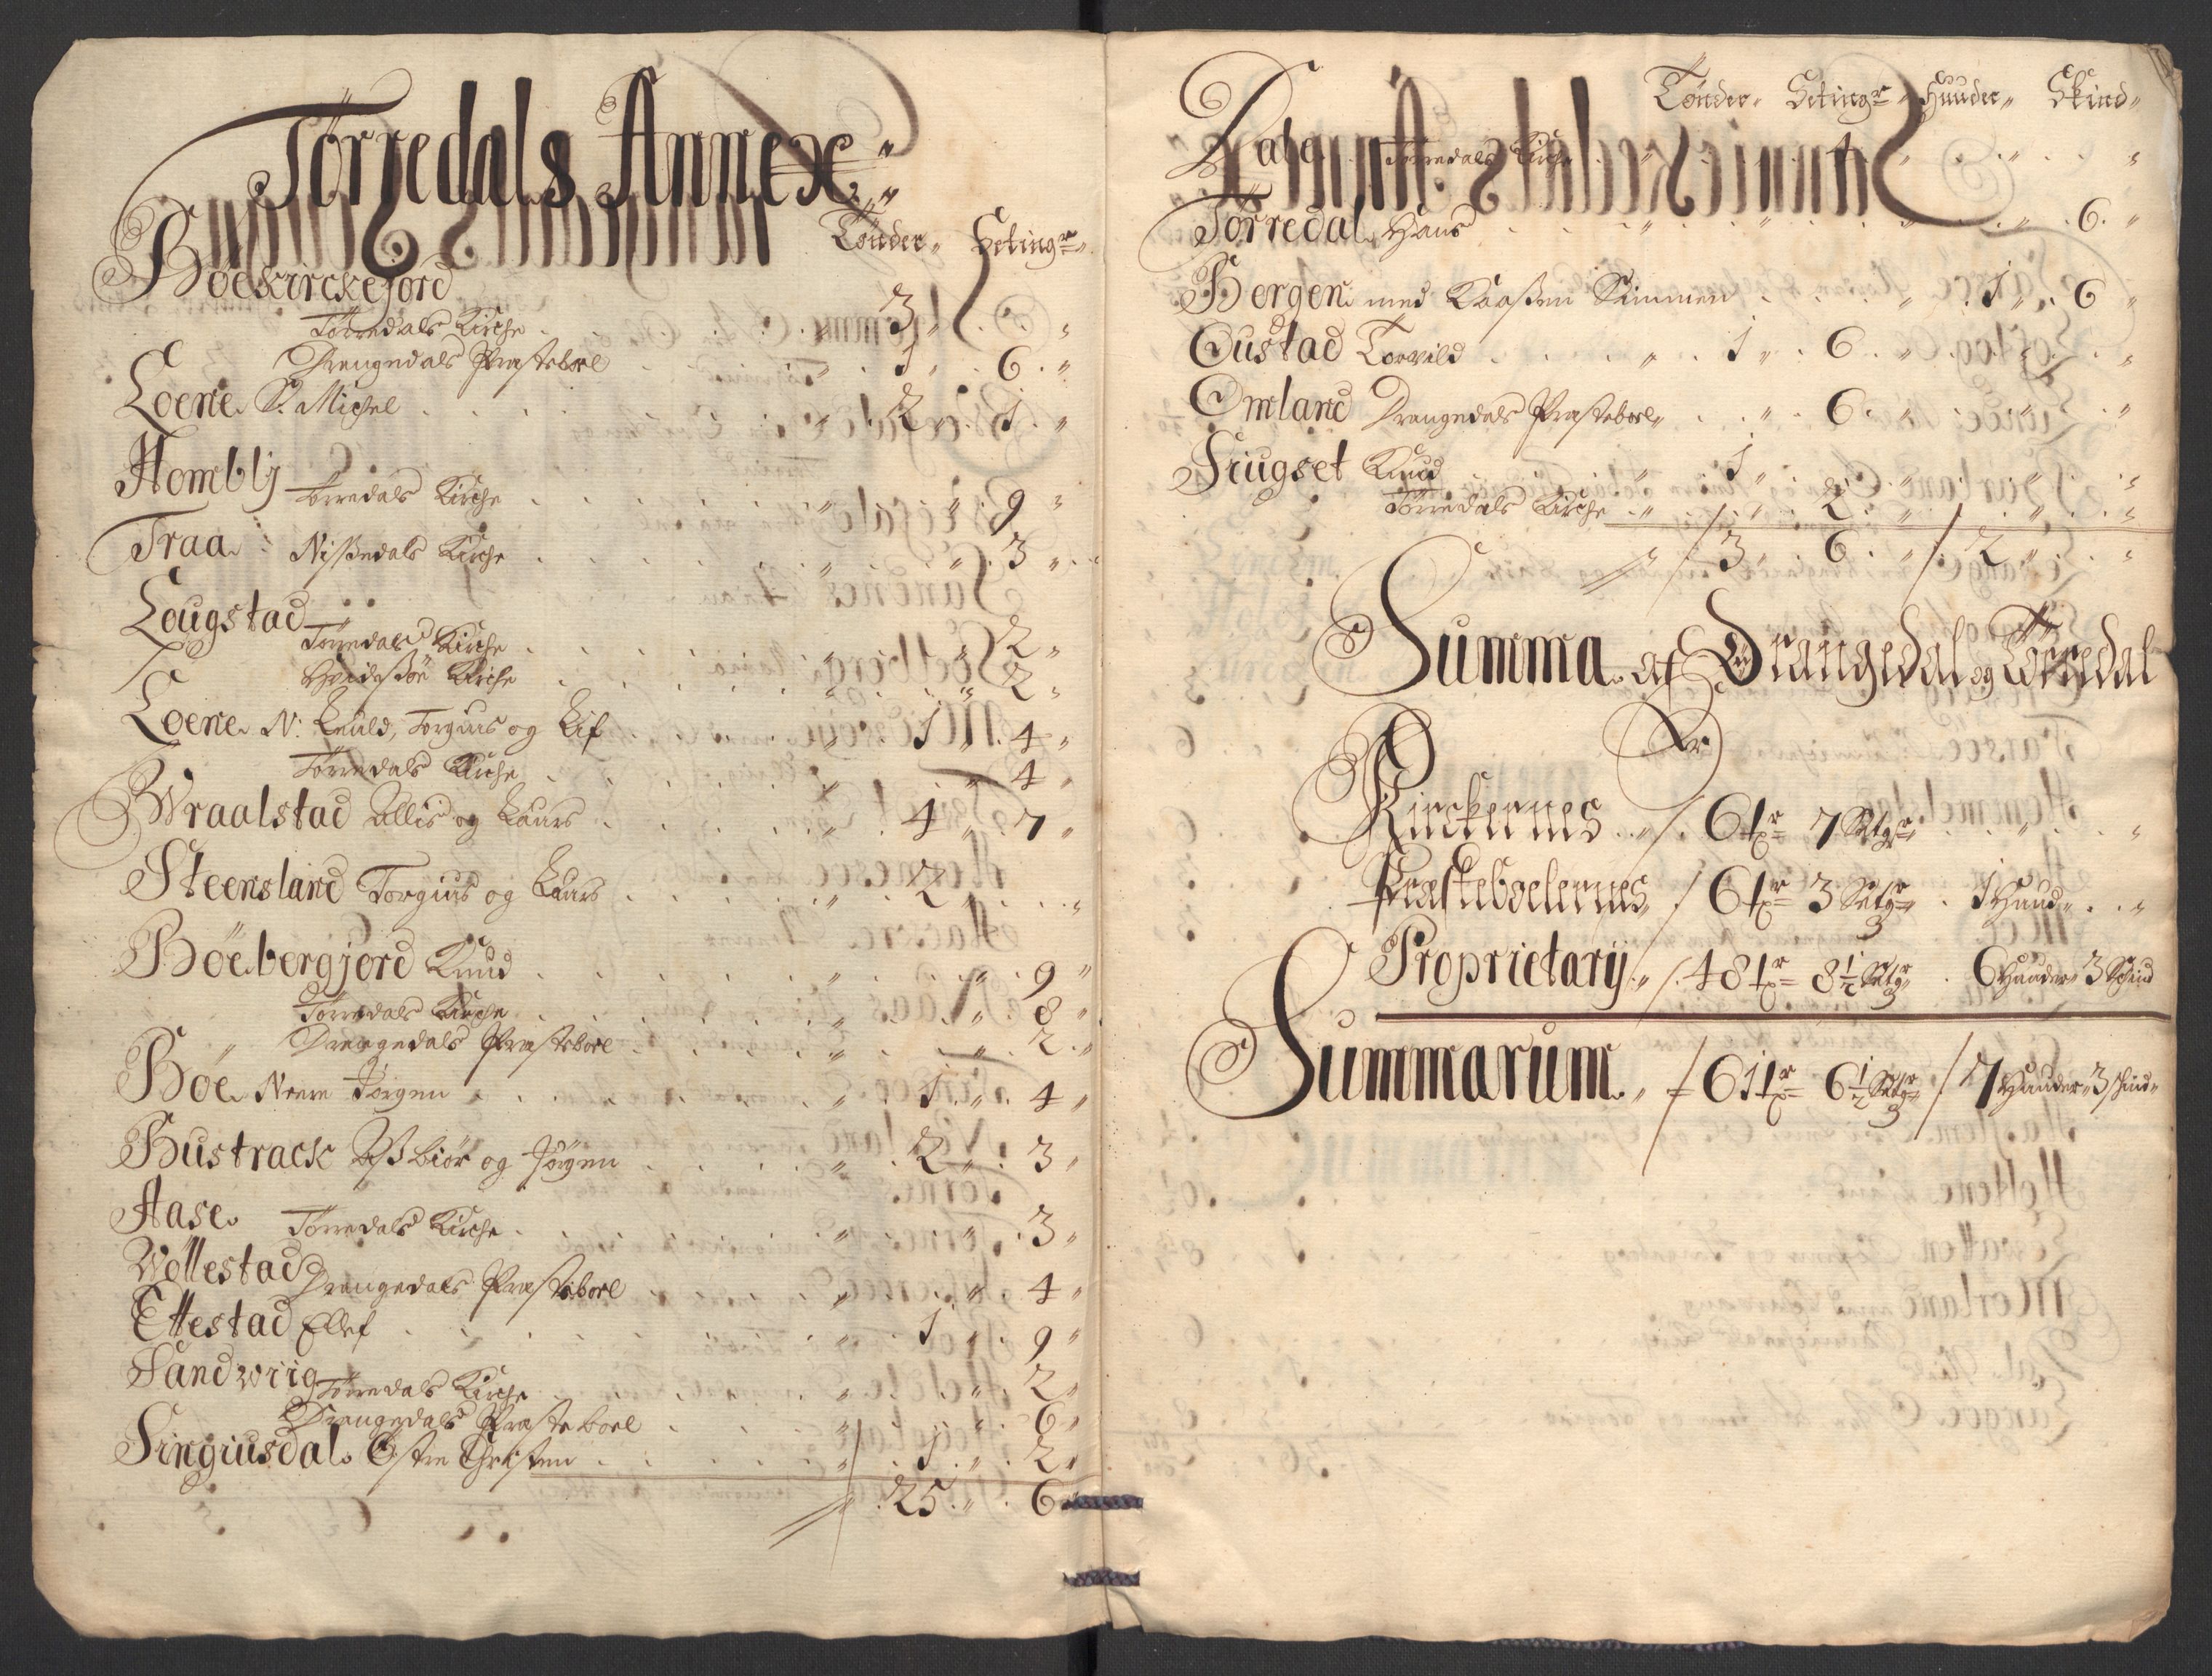 Törredals Annexe
Tönder Setingr
Böekirckejord
Törredals Kirche 3
Drangedals Præsteboel 1 6
Loene S. Michel 2 1
Hombly Törredals Kirche 9
Traa Nißedals Kirche 3
Lougstad
Törredals Kirche 2
Hvidesöe Kirche 2
Loene N: Leuld, Torgius og Lif 1 4
Törredals Kirche 4
Wraalstad Ollis og Laurs 4 7
Steensland Torgius og Laurs 2
Böebergjord Knud 9
Törredals Kirche 8
Drangedals Præsteboel 2
Böe Neere Jörgen 1 4
Bustrack Aßbiör og Jörgen 2 3
Aase Törredals Kirche 3
Wöllestad Drangedals Præsteboel 4
Ettestad Ellef 1 9
Sandwiig Törredals Kirche 2
Drangedals Præsteboel 6
Singiusdal Östre Christen 1 2
25 6
Tönder Setingr Huuder Skind
Törredals Kirche 4
Törredal Hans 6
Bergen med Kaaßen Simmen 1 6
Oustad Torvild 1 6
Omland Drangedals Præsteboel 6
Siugset Knud 1
Törredals Kirche 2
3 6 2
Summa af Drangedal og Törredal
Er
Kirckernes 6 tr 7 Setgr
Præsteboelernes 6 tr 3 Setgr 1 Huud
Proprietarij 48 tr 8½ Setgr 6 Huuder 3 Skind
Summarum 61 tr 6½ Setgr 7 Huuder 3 skind